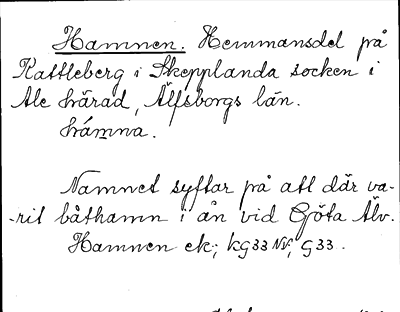 Hamnen. Hemmansdel på
Kattleberg i Skepplanda socken i
Ale härad, Älfsborgs län.
hámna.
Namnet syftar på att där va-
-rit båthamn i ån vid Göta Älv.
Hamnen ek; kg33 NV, g33.